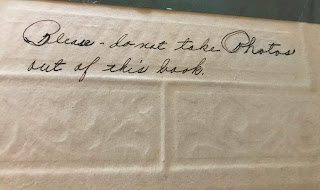 Please - do not take Photos
out of this book.